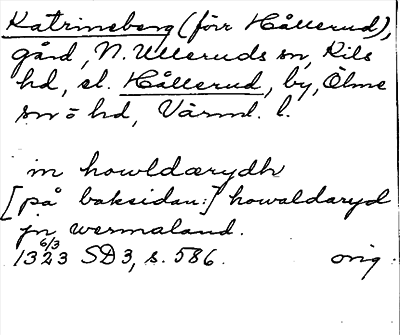 Katrineberg (förr Hållerud),
gård, N. Ulleruds sn, Kils
hd, el. Hållerud, by, Ölme
sn o hd, Värml. l.
in howldærydh
[på baksidan:] howaldaryd
jn wermaland.
13 6/3 23 SD 3, s. 586. orig.